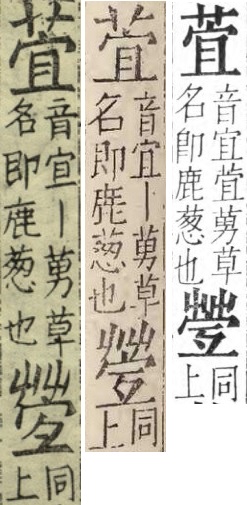 萓
音宜丨莮草
名即鹿葱也
同
上
萓
音宜丨莮草
名即鹿葱也
同
上
萓
音宜萓莮草
名即鹿葱也
同
上